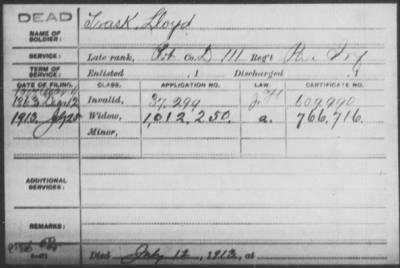 DEAD
NAME OF SOLDIER: Trask, Lloyd
SERVICE: Late rank, Pvt Co. D 111 Reg't Pa. Inf
TERM OF SERVICE: Enlisted , 1 Discharged , 1
DATE OF FILING. CLASS. APPLICATION NO. LAW. CERTIFICATE NO.
1863 Dec 12 Invalid, 37,299 609990
1912, July 25 Widow, 1,012,250. a. 766,716.
Minor,
ADDITIONAL SERVICES:
REMARKS:
Died July 12, 1912, at